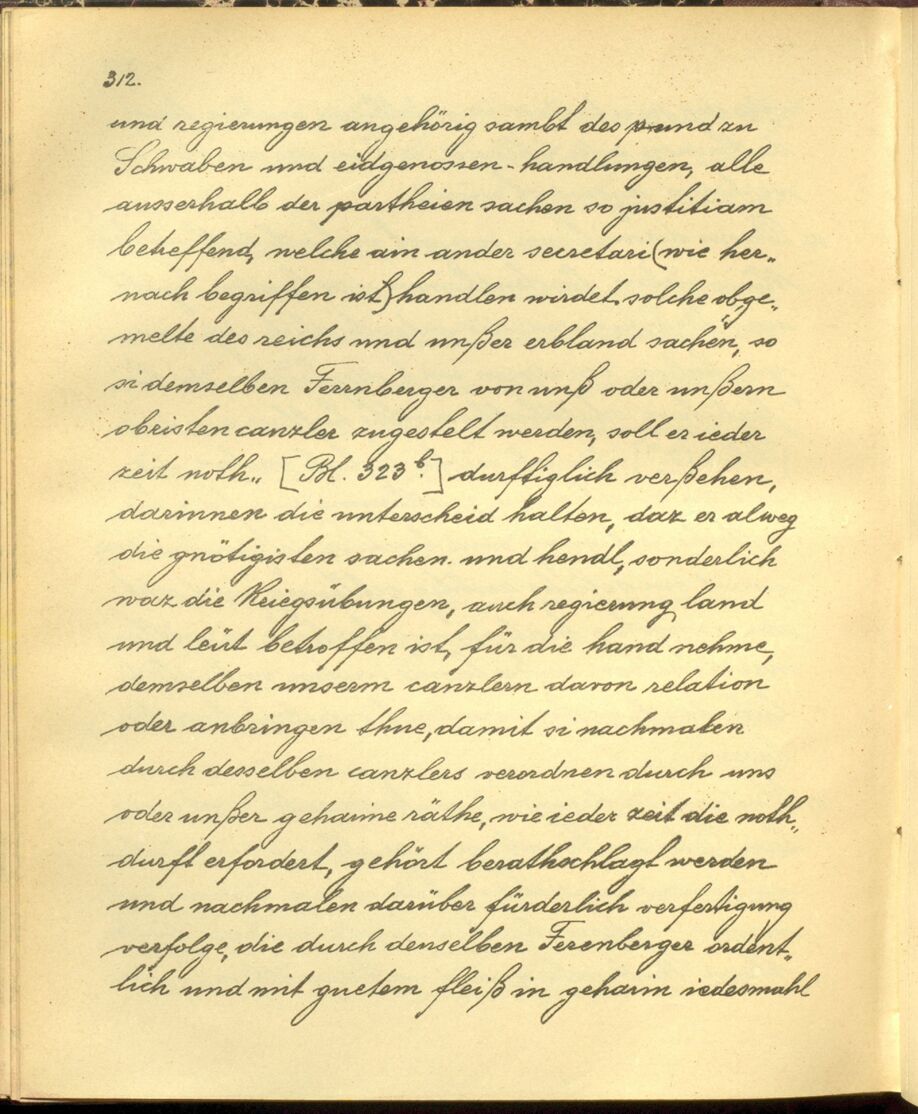 312.
und regierungen angehörig sambt des pund zu
Schwaben und eidgenossen-handlungen, alle
ausserhalb der partheien sachen so justitiam
betreffend, welche ain ander secretari (wie her„
nach begriffen ist) handlen wirdet. solche obge„
melte des reichs und unßer erbland sachen, so
si demselben Ferrnberger von unß oder unßern
obristen canzler zugestelt werden, soll er ieder
zeit noth„ [Bl. 323 b.] durfftiglich verßehen,
darinnen die unterscheid halten, daz er alweg
die gnötigisten sachen. und hendl, sonderlich
waz die Kriegsübungen, auch regierung land
und leüt betroffen ist, für die hand nehme,
demselben unserm canzlern davon relation
oder anbringen thue, damit si nachmalen
durch desselben canzlers verordnen durch uns
oder unßer gehaime räthe, wie ieder zeit die noth„
durft erfordert, gehört berathschlagt werden
und nachmalen darüber fürderlich verfertigung
verfolge, die durch denselben Ferenberger ordent„
lich und mit guetem fleiß in gehaim iedesmahl